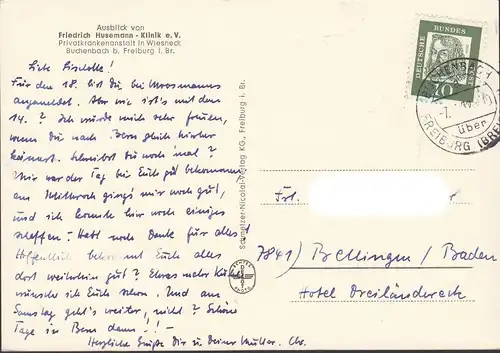 Ausblick von
Friedrich Husemann - Klinik e. V.
Privatkrankenanstalt in Wiesneck
Buchenbach b. Freiburg i. Br.
Liebe Liselotte!
Für den 18. bist du bei Moosmanns
angemeldet. Aber wie ist's mit dem
14.? Ich würde mich sehr freuen,
wenn du nach Bern gleich hierher
kämest. Schreibst du noch 'mal?
Mir war der Tag bei Euch gut bekommen
am Mittwoch ging's mir noch gut,
und ich konnte hier noch einiges
schaffen. Habt noch Dank für alles!
Hoffentlich bekommt Euch alles
dort weiterhin gut? Etwas mehr
wünsche ich Euch schon. Und am
Samstag geht's weiter, nicht? Schöne
Tage in Bern dann! -
Herzliche Grüße Dir u. Deiner Mutter. Chr.
Schmelzer-Nicolai-Verlag KG., Freiburg i. Br.
DEUTSCHE BUNDESPOST
10
BUCHENBACH
über
FREIBURG (BRSG)
Frl.
7841) Bellingen / Baden
Hotel Dreiländereck